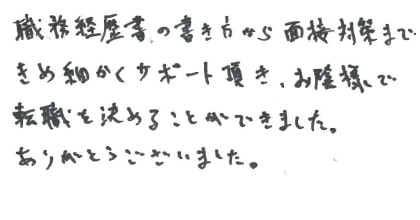 職務経歴書の書き方から面接対策まで
きめ細かくサポート頂き、お陰様で
転職を決めることができました。
ありがとうございました。